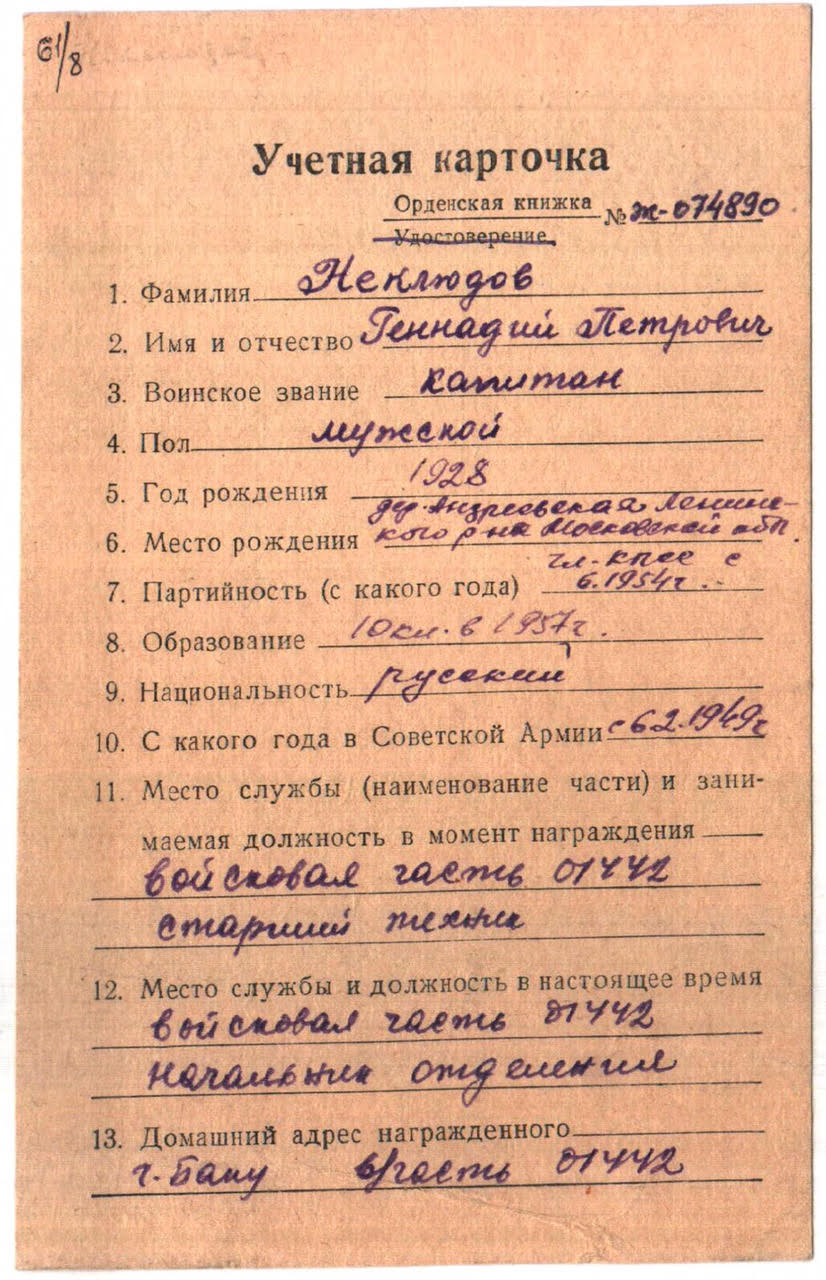 61/8
Учетная карточка
Орденская книжка № Ж-074890
Удостоверение
1. Фамилия Неклюдов
2. Имя и отчество Геннадий Петрович
3. Воинское звание капитан
4. Пол мужской
5. Год рождения 1928
дер. Андреевская Ленинс-
6. Место рождения кого р-на Московской обл.
чл. КПСС с
7. Партийность (с какого года) 6.1954г.
8. Образование 10 кл. в 1957г.
9. Национальность русский
10. С какого года в Советской Армии с 6.2.1949г
11. Место службы (наименование части) и зани-
маемая должность в момент награждения
войсковая часть 01442
старший техник
12. Место службы и должность в настоящее время
войсковая часть 01442
начальник отделения
13. Домашний адрес награжденного
г. Баку в/часть 01442